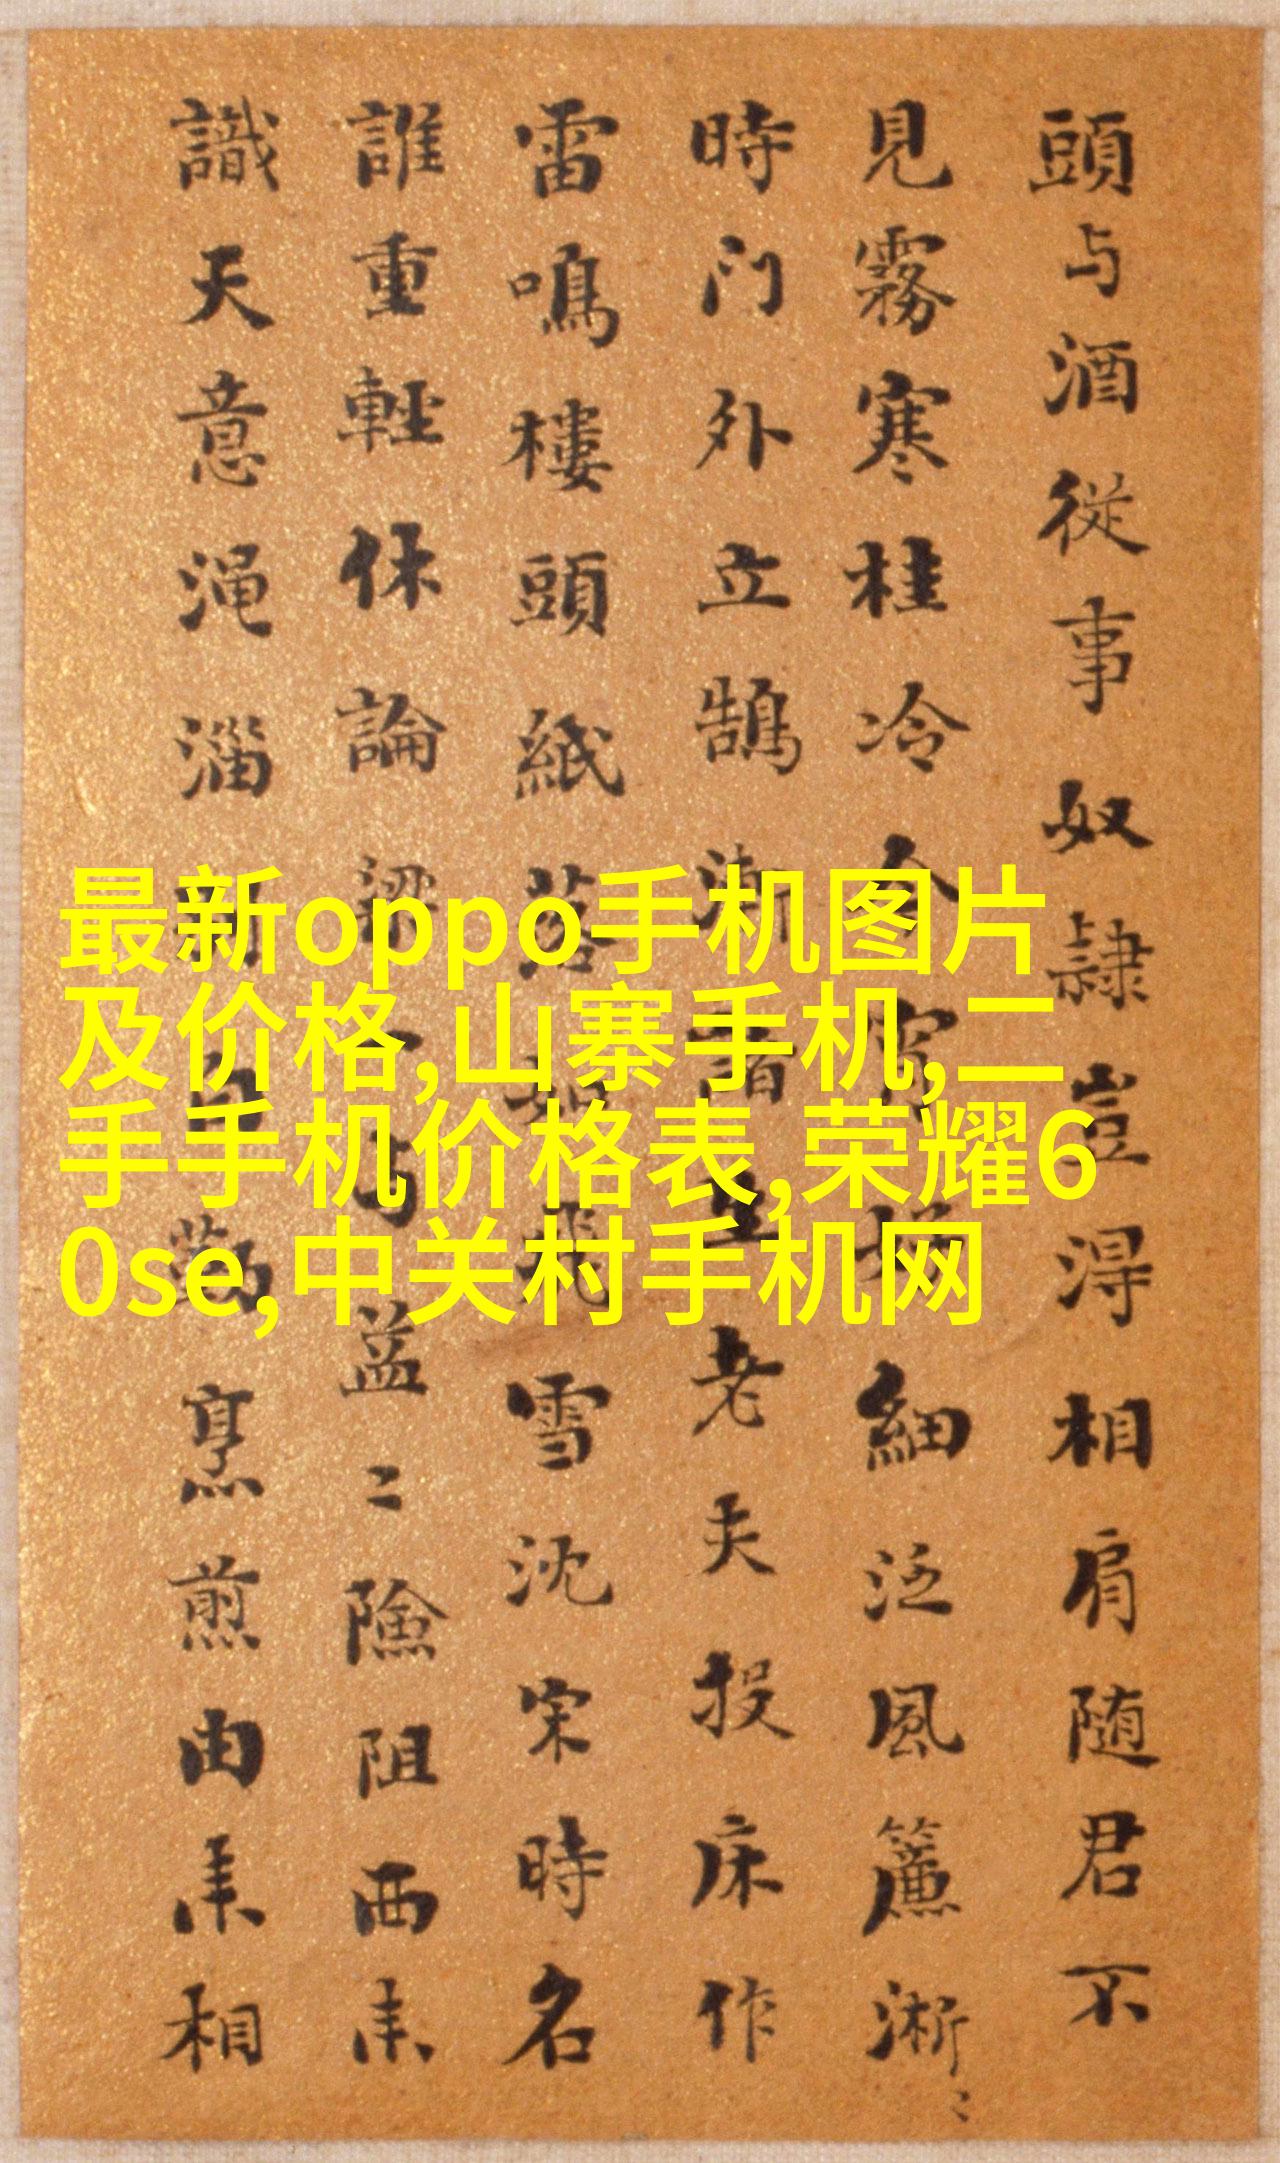 頭与酒從事奴隷豈淂相肩随君不
見霧寒桂冷細泛風簾淅〻
時门外立鵠漸老夫投床作
雷鳴樓頭紙落如飛雪沈宋時名
誰重輕休論梁益〻險阻西来
識天意渑淄烹煎由来相
最新oppo手机图片
及价格,山寨手机,二
手手机价格表,荣耀6
0se,中关村手机网